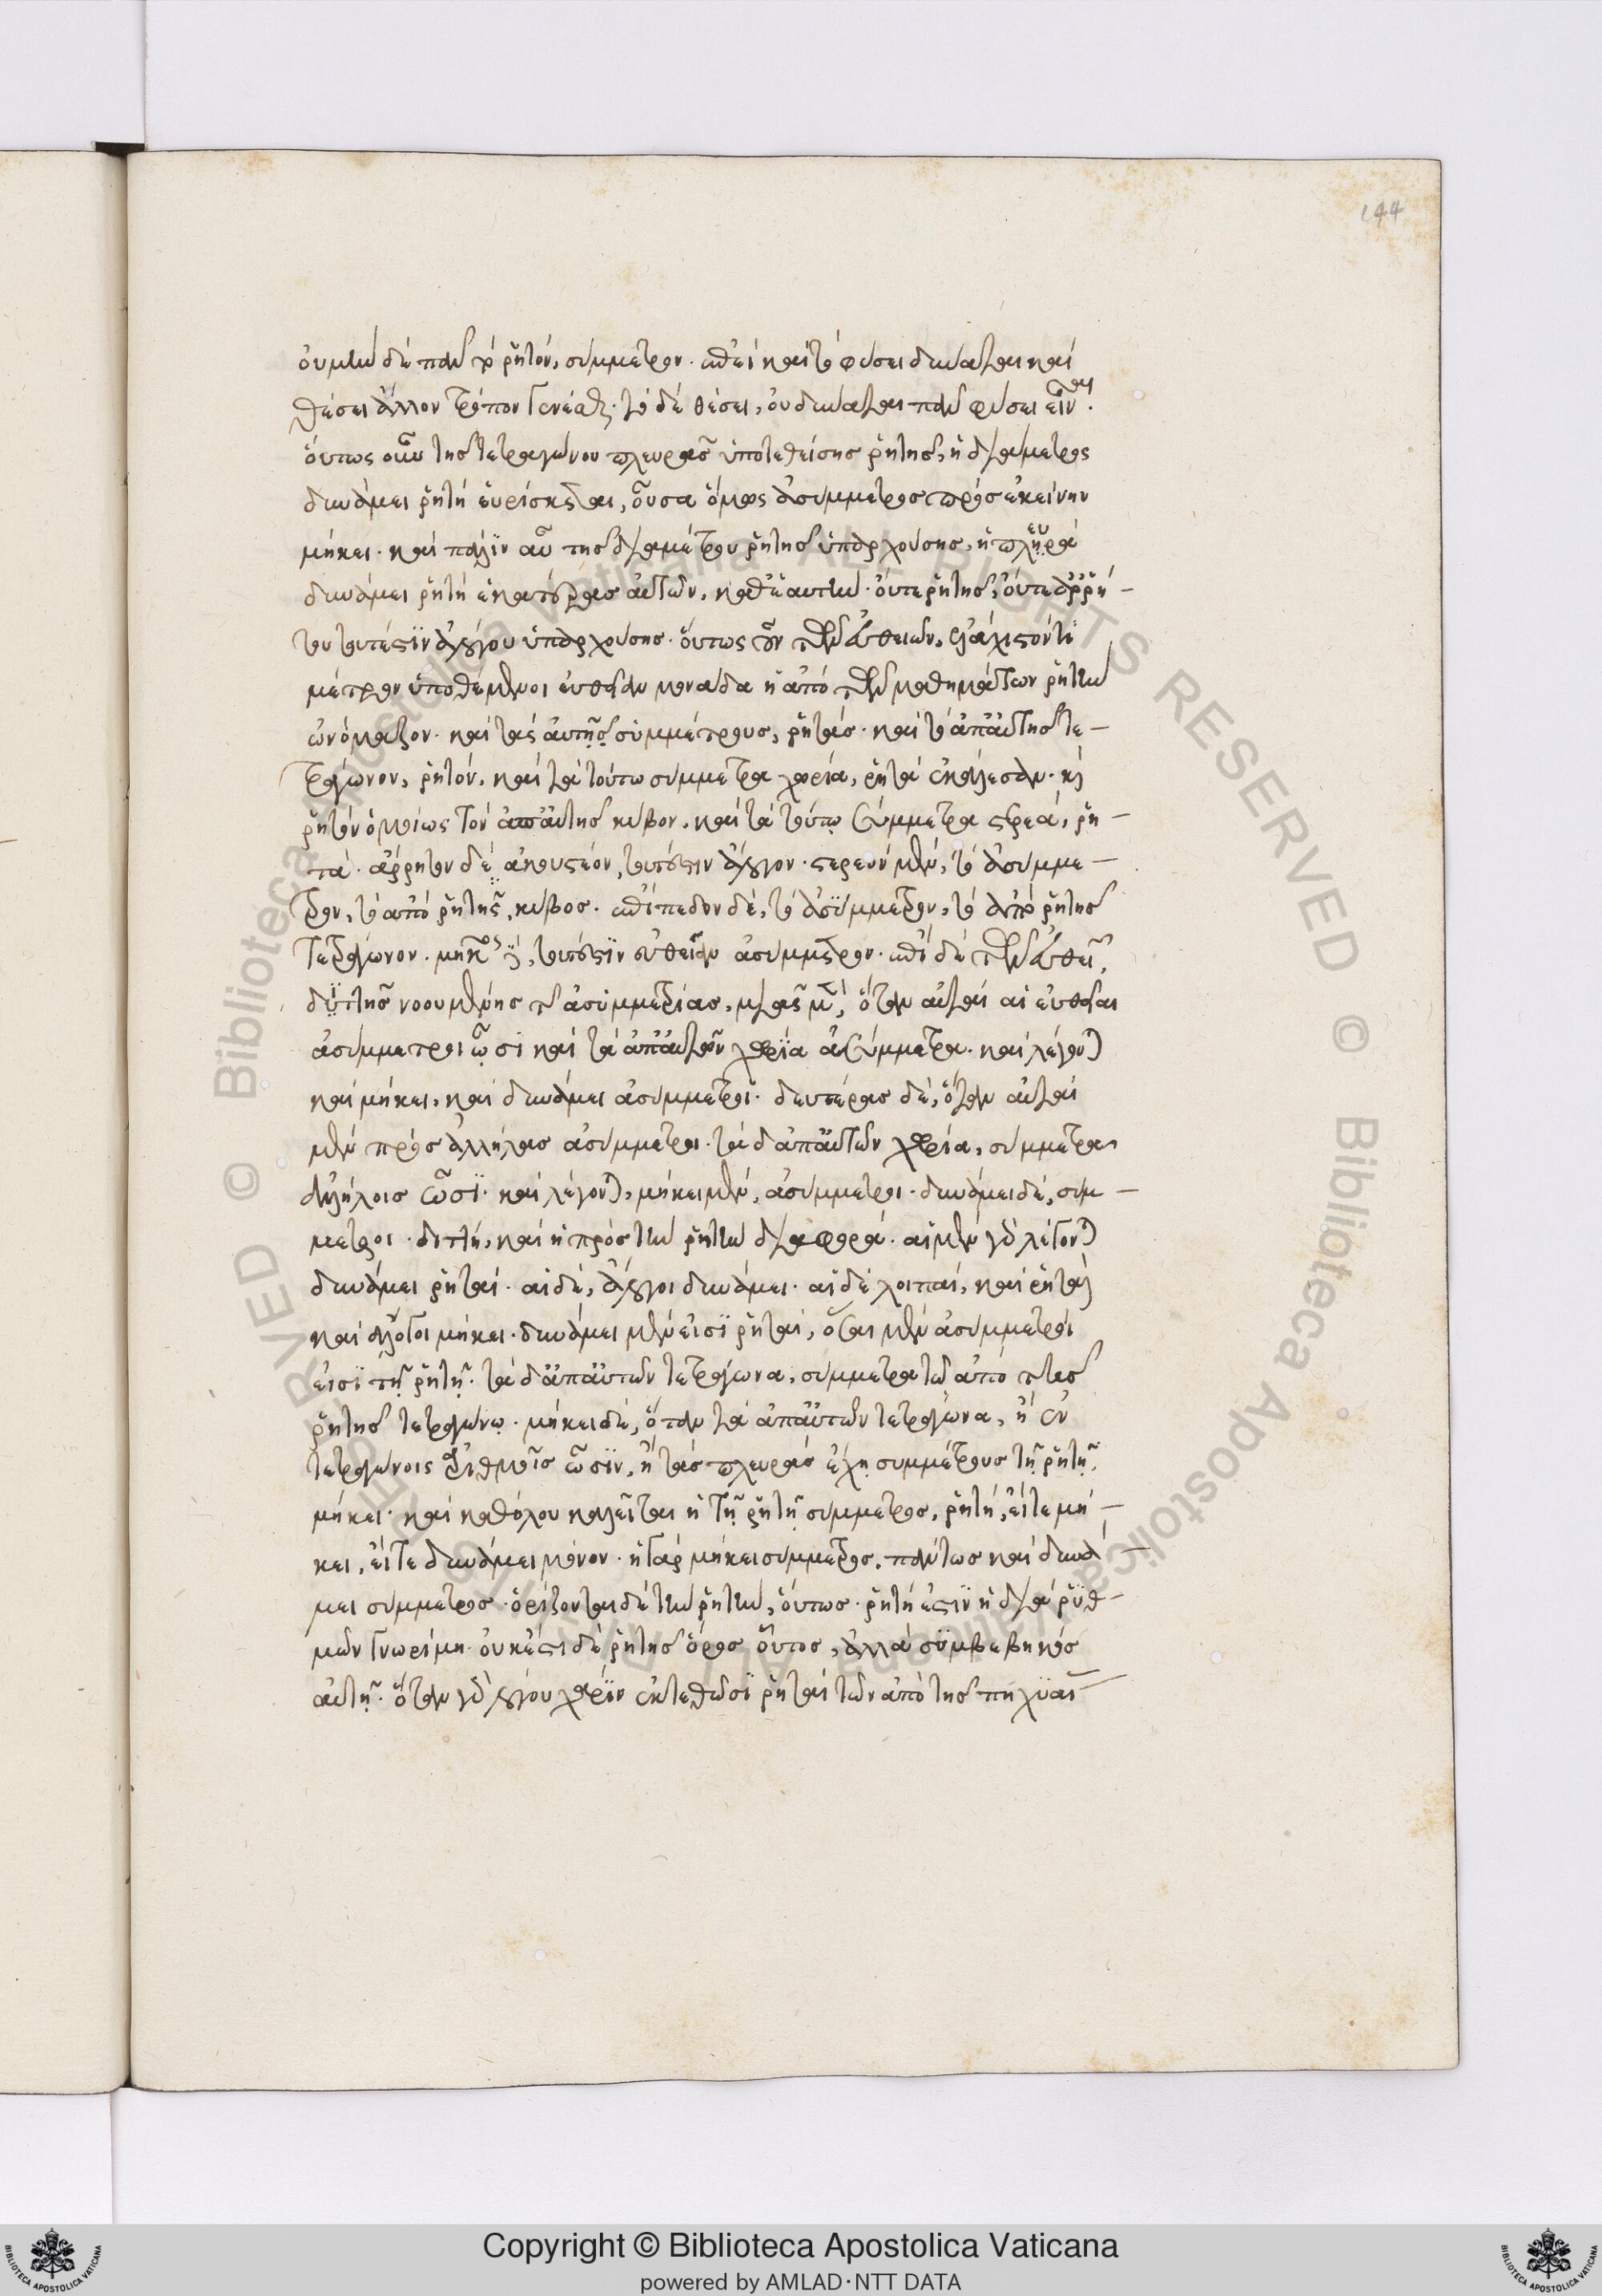 144
οὐ μὴν δὲ πᾶν τὸ ῥητόν, σύμμετρον. ἐπεὶ καὶ τὸ φύσει δύναται καὶ
θέσει ἄλλον τρόπον γενέσθαι. τὸ δὲ θέσει, οὐ δύναται πᾶν φύσει εἶναι.
οὕτως οὖν τῆς τετραγώνου πλευρᾶς ὑποτεθείσης ῥητῆς, ἡ διάμετρος
δυνάμει ῥητὴ εὑρίσκεται, οὖσα ὅμως ἀσύμμετρος πρὸς ἐκείνην
μήκει. καὶ πάλιν αὖ τῆς διαμέτρου ῥητῆς ὑπαρχούσης, ἡ πλευρὰ
δυνάμει ῥητὴ ἑκατέρας αὐτῶν, καθ' ἑαυτὴν. οὔτε ῥητῆς, οὔτε ἀρρή-
του τουτέστιν ἀλόγου ὑπαρχούσης. οὕτως οὖν τῶν εὐθειῶν, ἐλάχιστόν τι
μέτρον ὑποθέμενοι εὐθεῖαν μονάδα ἣ ἀπὸ τῶν μαθημάτων ῥητὴν
ὠνόμαζον. καὶ τὰς αὐτῇ συμμέτρους, ῥητάς. καὶ τὸ ἀπ' αὐτῆς τε-
τράγωνον, ῥητόν. καὶ τὰ τούτω σύμμετρα χωρία, ῥητὰ ἐκάλεσαν. καὶ
ῥητὸν ὁμοίως τὸν ἀπ' αὐτῆς κύβον. καὶ τὰ τούτῳ σύμμετρα στερεά, ῥη-
τά. ἄρρητον δὲ ἀκουστέον, τουτέστιν ἄλογον. στερεὸν μὲν, τὸ ἀσύμμε-
τρον, τῷ ἀπὸ ῥητῆς κύβος. ἐπίπεδον δὲ, τὸ ἀσύμμετρον, τῷ ἀπὸ ῥητῆς
τετράγωνον. τουτέστιν εὐθεῖαν ἀσύμμετρον. ἐπὶ δὲ τῶν εὐθειῶν,
διττῆς νοουμένης τῆς ἀσυμμετρίας, μιᾶς μὲν, ὅταν αὐταὶ αἱ εὐθεῖαι
ἀσύμμετροι ὦσι καὶ τὰ ἀπ' αὐτῶν χωρία ἀσύμμετρα. καὶ λέγονται
καὶ μήκει, καὶ δυνάμει ἀσύμμετροι. δευτέρας δὲ, ὅταν αὐταὶ
μὲν πρὸς ἀλλήλας ἀσύμμετροι. τὰ δ' ἀπ' αὐτῶν χωρία, σύμμετρα
ἀλλήλοις ὦσι. καὶ λέγονται, μήκει μὲν, ἀσύμμετροι. δυνάμει δὲ, σύμ-
μετροι. διττὴ, καὶ ἡ πρὸς τὴν ῥητὴν διαφορά. αἱ μὲν γὰρ λέγονται
δυνάμει ῥηταί. αἱ δὲ, ἄλογοι δυνάμει. αἱ δὲ λοιπαὶ, καὶ ῥηταὶ
καὶ ἄλογοι μήκει. δυνάμει μὲν εἰσὶ ῥηταὶ, ὅσαι μὲν ἀσύμμετροί
εἰσι τῇ ῥητῇ. τὰ δ' ἀπ' αὐτῶν τετράγωνα, σύμμετρα τῷ ἀπὸ τῆς
ῥητῆς τετραγώνῳ. μήκει δὲ, ὅταν τὰ ἀπ' αὐτῶν τετράγωνα, ἢ ἐν
τετραγώνοις ἀριθμοῖς ὦσιν, ἢ τὰς πλευρὰς ἔχῃ συμμέτρους τῇ ῥητῇ,
μήκει. καὶ καθόλου καλεῖται ἡ τῇ ῥητῇ σύμμετρος, ῥητή, εἴτε μή-
κει, εἴτε δυνάμει μόνον. ἡ γὰρ μήκει σύμμετρος, πάντως καὶ δυνά-
μει σύμμετρος. ὁρίζονται δὲ τὴν ῥητὴν, οὕτως. ῥητή ἐστιν ἡ δι' ἀριθ-
μῶν γνωρίμη. οὐκ ἔστι δὲ ῥητῆς ὅρος οὗτος, ἀλλὰ συμβεβηκός
αὐτῇ. ὅταν γὰρ λόγου χάριν ἐκτεθῶσι ῥηταὶ τῶν ἀπὸ τῆς πηχυαί
Copyright © Biblioteca Apostolica Vaticana
powered by AMLAD·NTT DATA